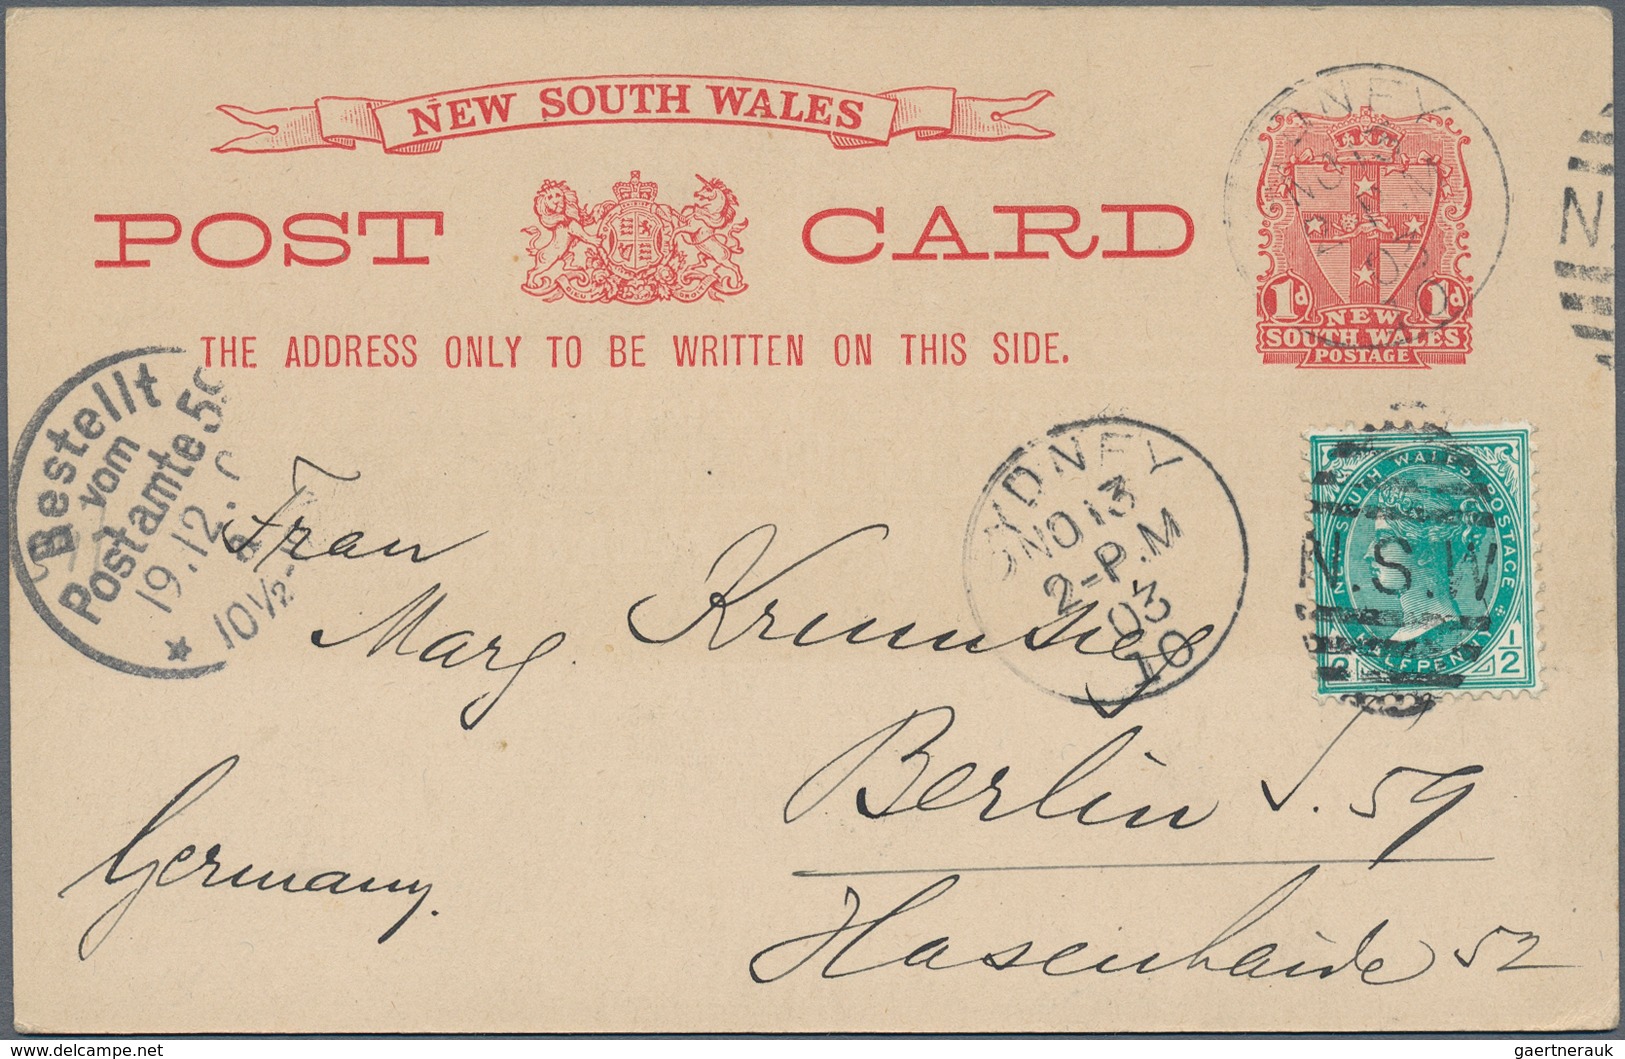 NEW SOUTH WALES
POST CARD
THE ADDRESS ONLY TO BE WRITTEN ON THIS SIDE.
1d 1d
NEW
SOUTH WALES
POSTAGE
SYDNEY
NO 13
2-P.M
03
10
N
Bestellt
vom
Postamte 59
19.12.0
10½-
SYDNEY
NO 13
2-P.M
03
10
NEW SOUTH WALES POSTAGE
HALFPENNY
½ ½
N.S.W
Frau
Marg.
Berlin S. 59
Germany.
Hasenhaide 52
delcampe.net
gaertnerauk